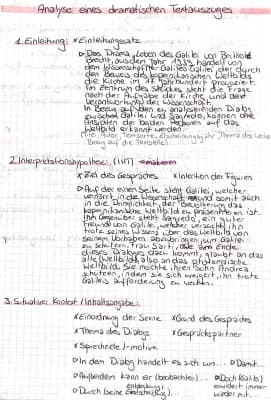 Analyse eines dramatischen Textauszuges
1. Einleitung: x Einleitungssatz
▷ Das Drama „Leben des Galilei" von Bertholt
Brecht aus dem Jahr 1939 handelt von
dem Wissenschaftler Galileo Galilei, der durch
den Beweis des kopernikanischen Weltbilds
die Kirche im 17. Jahrhundert provoziert.
Im Zentrum des Stückes steht die Frage
nach der Aufgabe der Kirche und der
Verantwortung der Wissenschaft.
In Bezug auf den zu analysierenden Dialog
zwischen Galilei und Sagredo, können die
Ansichten der beiden Personen auf das
Weltbild erkannt werden.
(Titel, Autor, Textsorte, Erscheinungsjahr, Thema des
Bezug auf die Textstelle)
2. Interpretationshypothese: (INT) → markieren
x Ziel des Gespräches x Intention der Figuren
▷ Auf der einen Seite steht Galilei, welcher
vernarrt in die Wissenschaft und somit auch
in die Möglichkeit, der Bevölkerung das
kopernikanische Weltbild zu präsentieren ist.
Ihm gegenüber steht Sagredo, ein guter
Freund von Galilei, welcher versucht, ihn
trotz seines Wissens über das Weltbild von
seinem Vorhaben abzubringen, um Galilei
zu schützen. Frau Sarti, die am Ende
dieses Dialoges dazu kommt, glaubt an das
alte Weltbild, also an das ptolemäische
Weltbild. Sie möchte ihren Sohn Andrea
schützen, indem sie sich weigert, ihn trotz
Galileis Aufforderung zu wecken.
3. Situativer Kontext / Inhaltsangabe:
x Einordnung der Szene x Grund des Gespräches
x Thema des Dialogs x Gesprächspartner
x Sprechziele / -motive
▷ In dem Dialog handelt es sich um... ▷ Damit...
▷ Außerdem kann er (beobachten)... ▷ Doch (Galilei)
▷ Durch (seine Entdeckung)... erwidert immer
wieder mit...